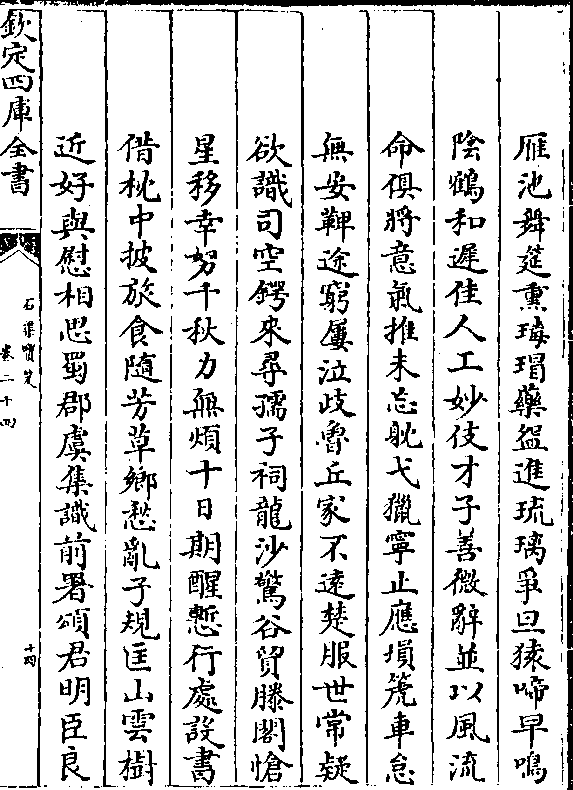 雁池舞筵熏瑇瑁藥盌進琉璃爭旦猿啼早鳴
陰鶴和遲佳人工妙伎才子善微辭並以風流
命俱將意氣推未忘耽弋獵寧止應塤箎車怠
無安鞞途窮屢泣歧魯丘家不逺楚服世常疑
欲識司空鍔來尋孺子祠龍沙驚谷貿滕閣愴
星移幸努千秋力無煩十日期醒慙行處設書
借枕中披旅食隨芳草鄉愁亂子規匡山雲樹
近好與慰相思蜀郡虞集識前署頌君明臣良
欽定四庫全書
石渠寳笈
卷二十四
十四